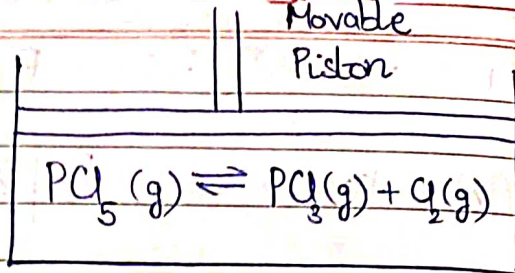 Movable
Piston
PCl₅ (g) ⇌ PCl₃(g) + Cl₂(g)